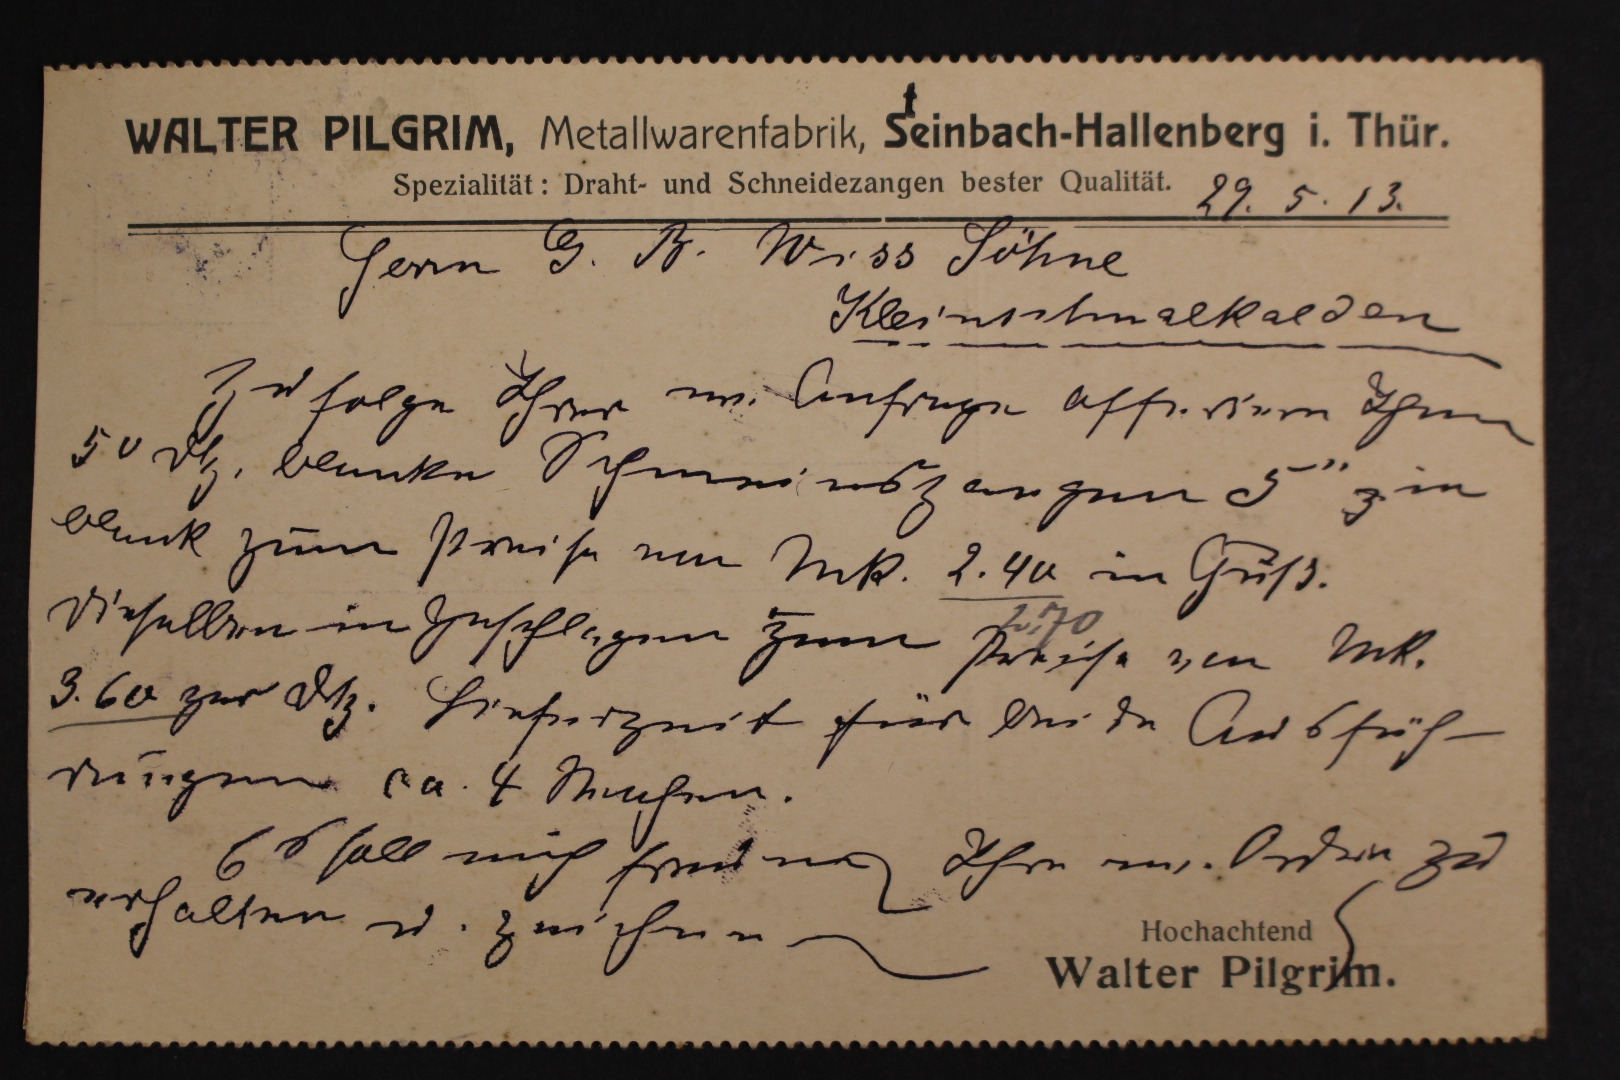 WALTER PILGRIM, Metallwarenfabrik, Seinbach-Hallenberg i. Thür.
t
Spezialität: Draht- und Schneidezangen bester Qualität.
29. 5. 13.
Herrn G. B. Wiss Söhne
Kleinschmalkalden
Zufolge Ihrer w. Anfrage offeriere Ihnen
50 Dtz. blanke 5" in
blank zum Preise von Mk. 2.40 in Guß.
2,70
Dieselben in Geschlagen zum Preise von Mk.
3.60 per Dtz. Lieferzeit für beide Ausfüh-
rungen ca. 4 Wochen.
Es soll mich freuen Ihre w. Ordre zu
erhalten u. zeichne
Hochachtend
Walter Pilgrim.